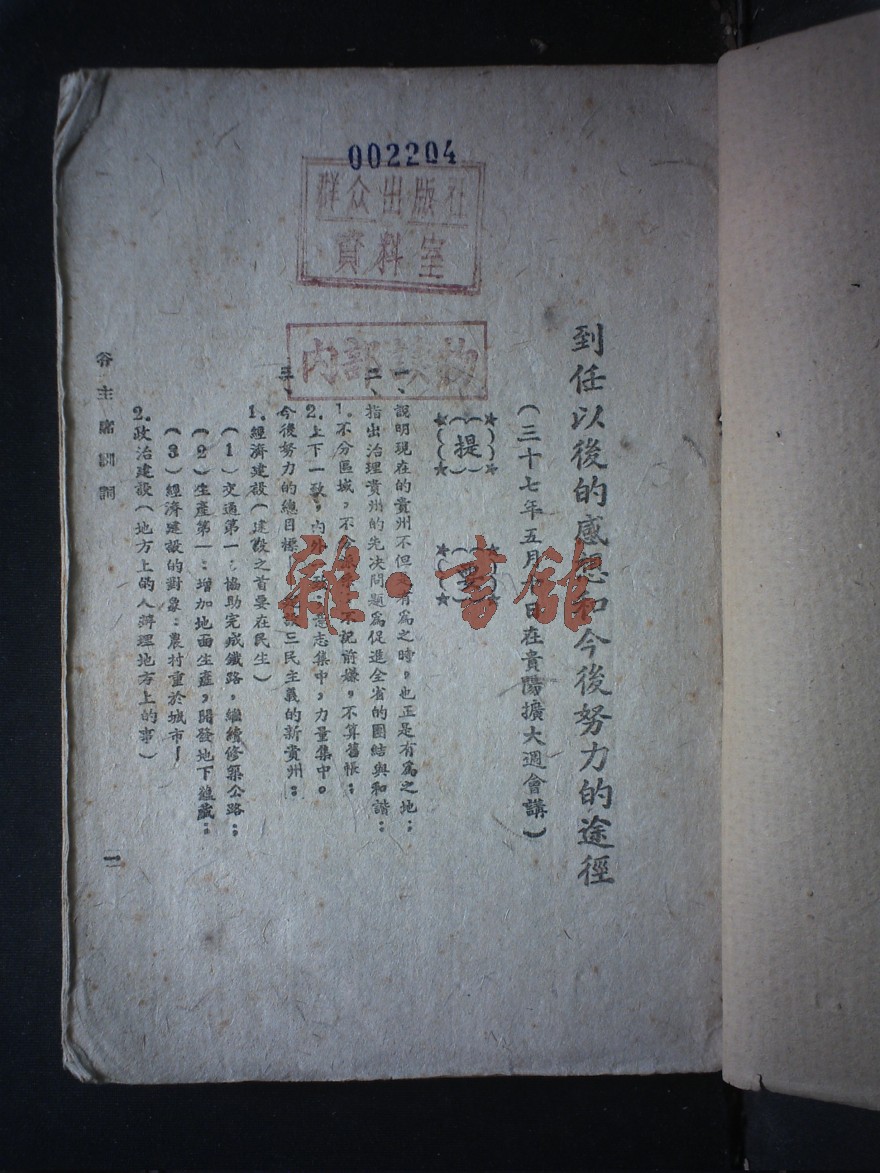 002204
群众出版社
資料室
内部讀物
到任以後的感想和今後努力的途徑
(三十七年五月 日在貴陽擴大週會講)
提 要
一、說明現在的貴州不但 有為之時,也正是有為之地;
二、指出治理貴州的先決問題為促進全省的團結與和諧:
1.不分區域,不分 不記前嫌,不算舊帳;
2.上下一致,內外一致,意志集中,力量集中。
三、今後努力的總目標 三民主義的新貴州:
1.經濟建設(建設之首要在民生)
(1)交通第一:協助完成鐵路,繼續修築公路;
(2)生產第一:增加地面生產,開發地下蘊藏;
(3)經濟建設的對象:農村重於城市—
2.政治建設(地方上的人辦理地方上的事)
谷主席訓詞
一
雜·書館